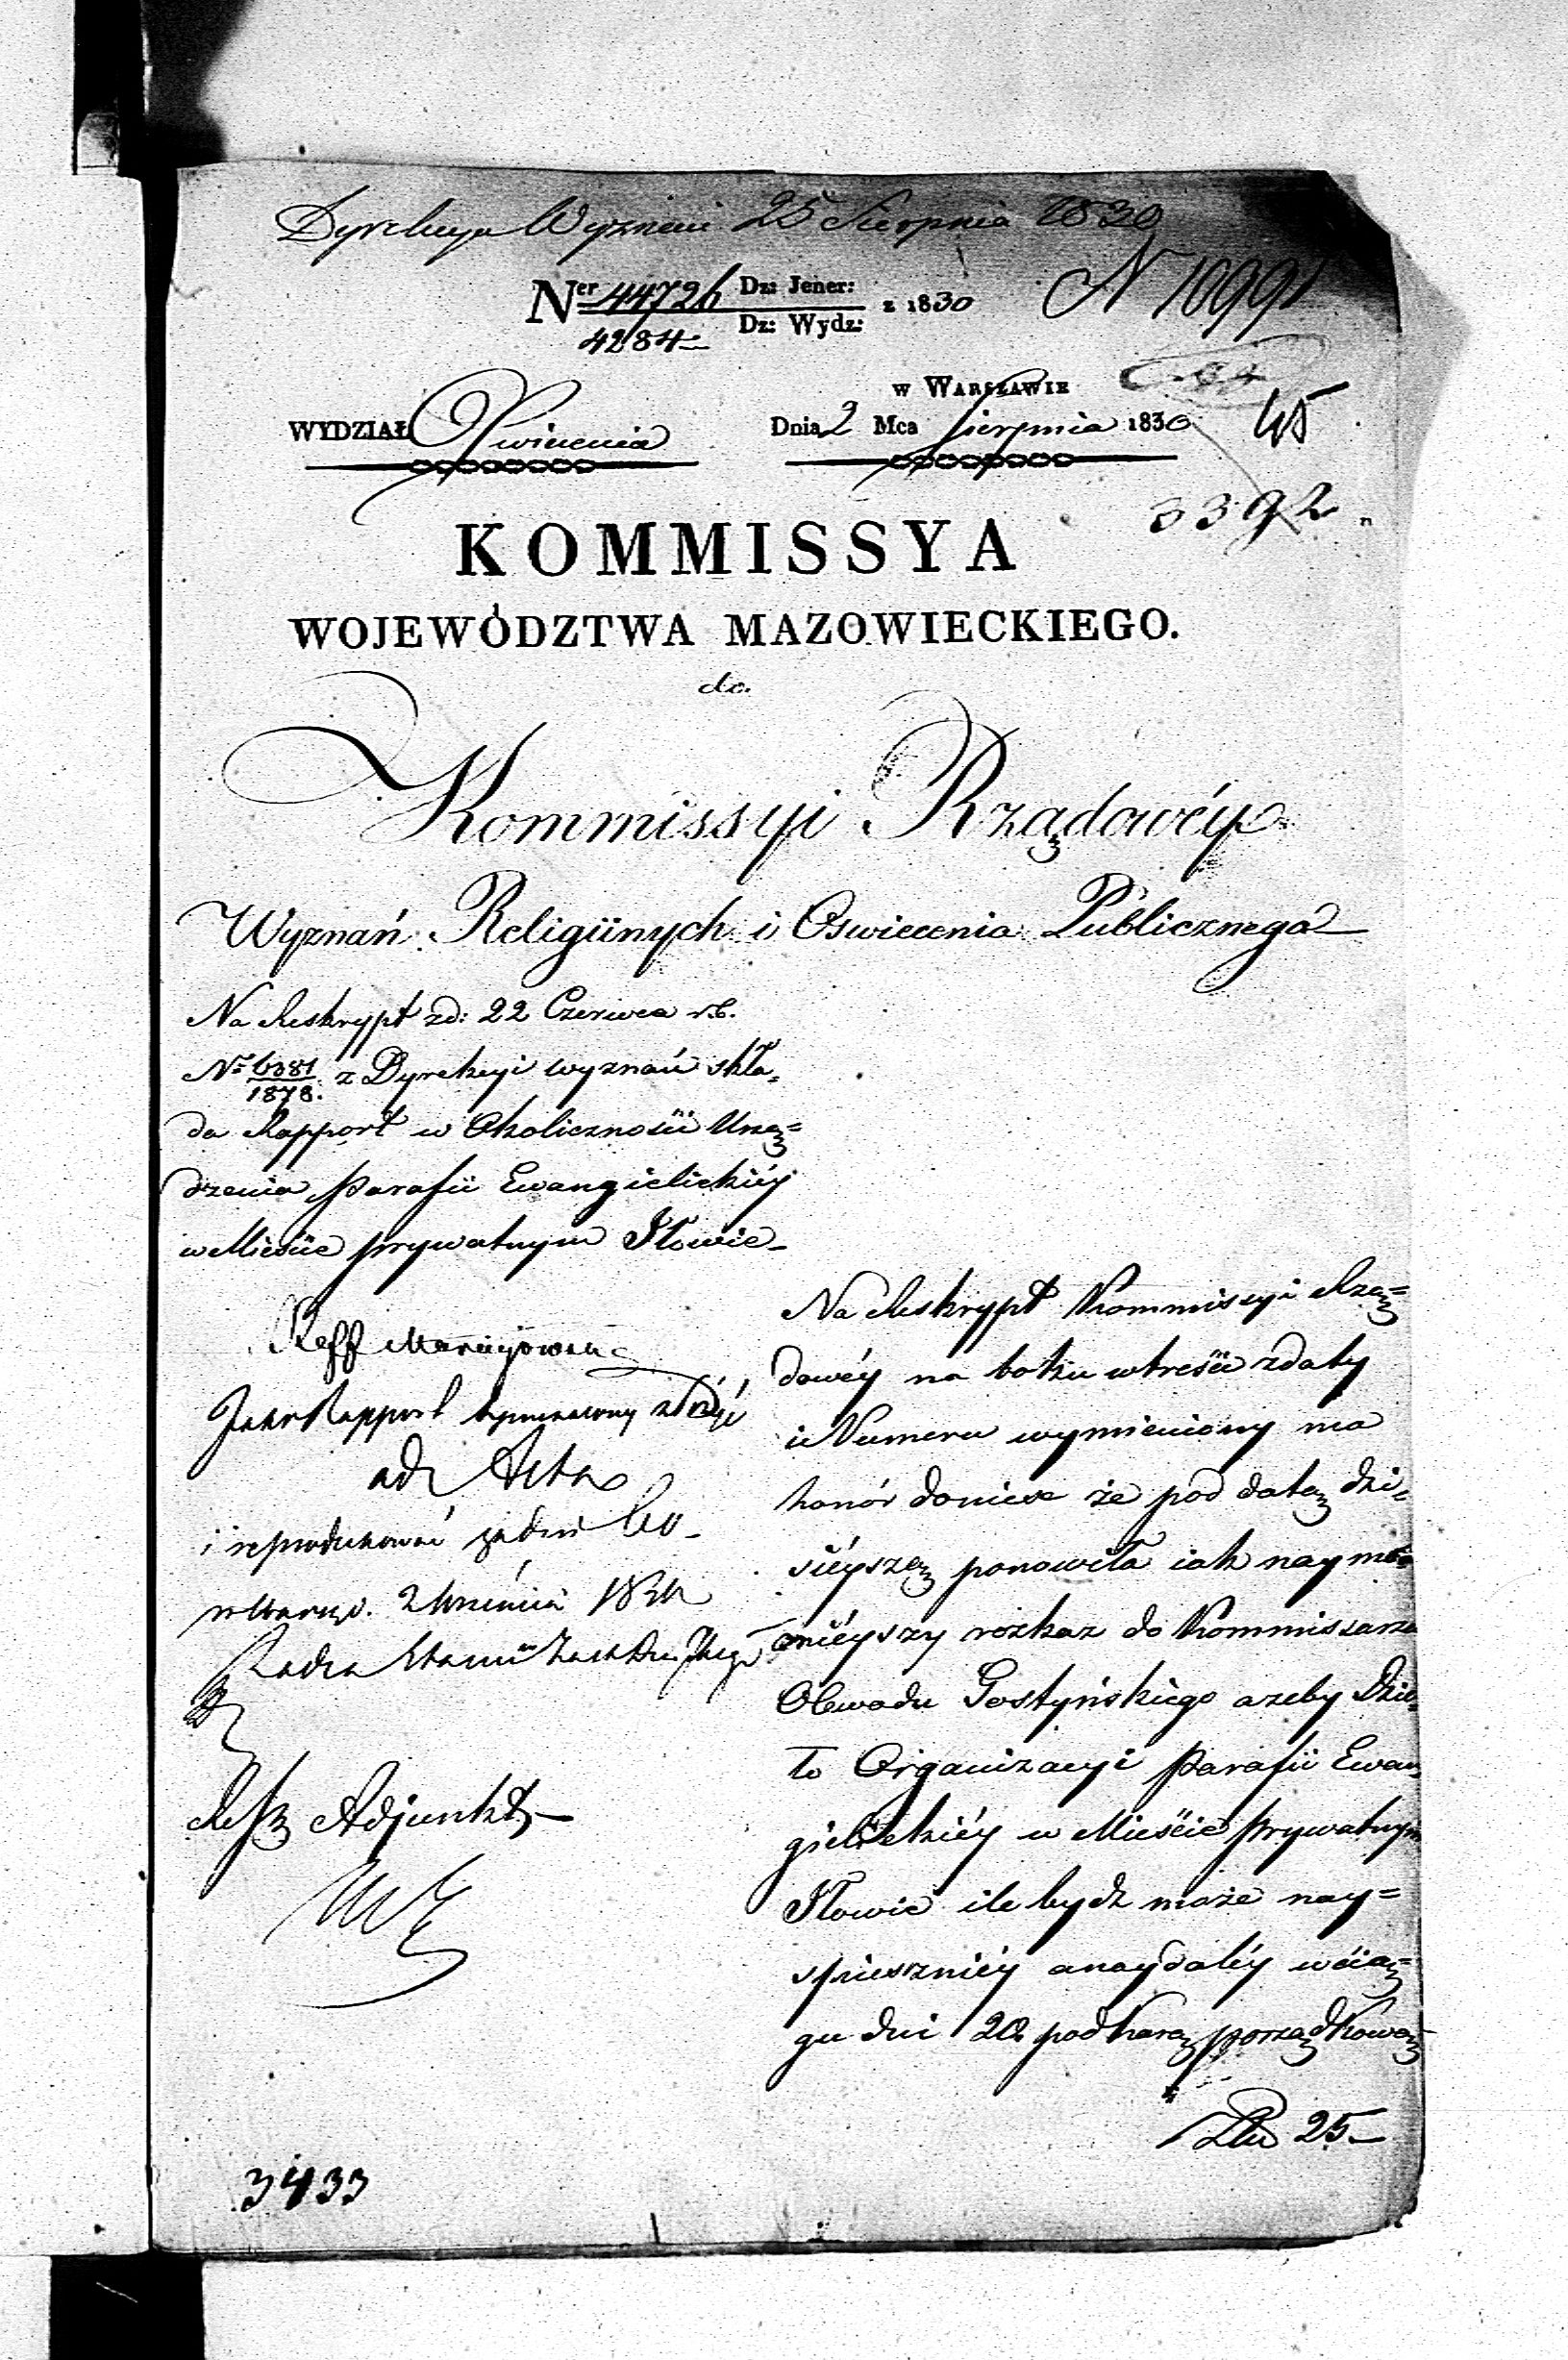 Dyrekcya Wyznań 25 Sierpnia 1830
Ner 44726 Dz: Jener: z 1830
4284 Dz: Wydz:
N 10991
w Warszawie
WYDZIAŁ Oświecenia
Dnia 2 Mca Sierpnia 1830
45
3392
KOMMISSYA
WOJEWÓDZTWA MAZOWIECKIEGO.
do.
Kommissyi Rządowéy
Wyznań Religiinych i Oswiecenia Publicznego
Na Reskrypt zd: 22 Czerwca r.b.
No 6381/1878. z Dyrekcyi wyznań skła=
da Rapport w Okoliczności Urzą=
dzenia Parafii Ewangielickiéy
w Mieście prywatnym Iłowie
Reff
Jako Rapport złożyć
ad Acta
i reprodukować
2 Września 1830
Radca Stanu
Adjunkt
Na Reskrypt Kommissyi Rzą=
dowéy na boku w treści z daty
i Numeru wymieniony ma
honór donieść że pod datą dzi=
siéyszą ponowiła iak naymo
cniéyszy rozkaz do Kommissarza
Obwodu Gostyńskiego azeby Dzie
ło Organizacyi Parafii Ewan
gielickiéy w Mieście prywatnym
Iłowie ile bydź może nay=
spieszniéy a naydaléy w cią=
gu dni 20. pod karą porządkową
25
3433